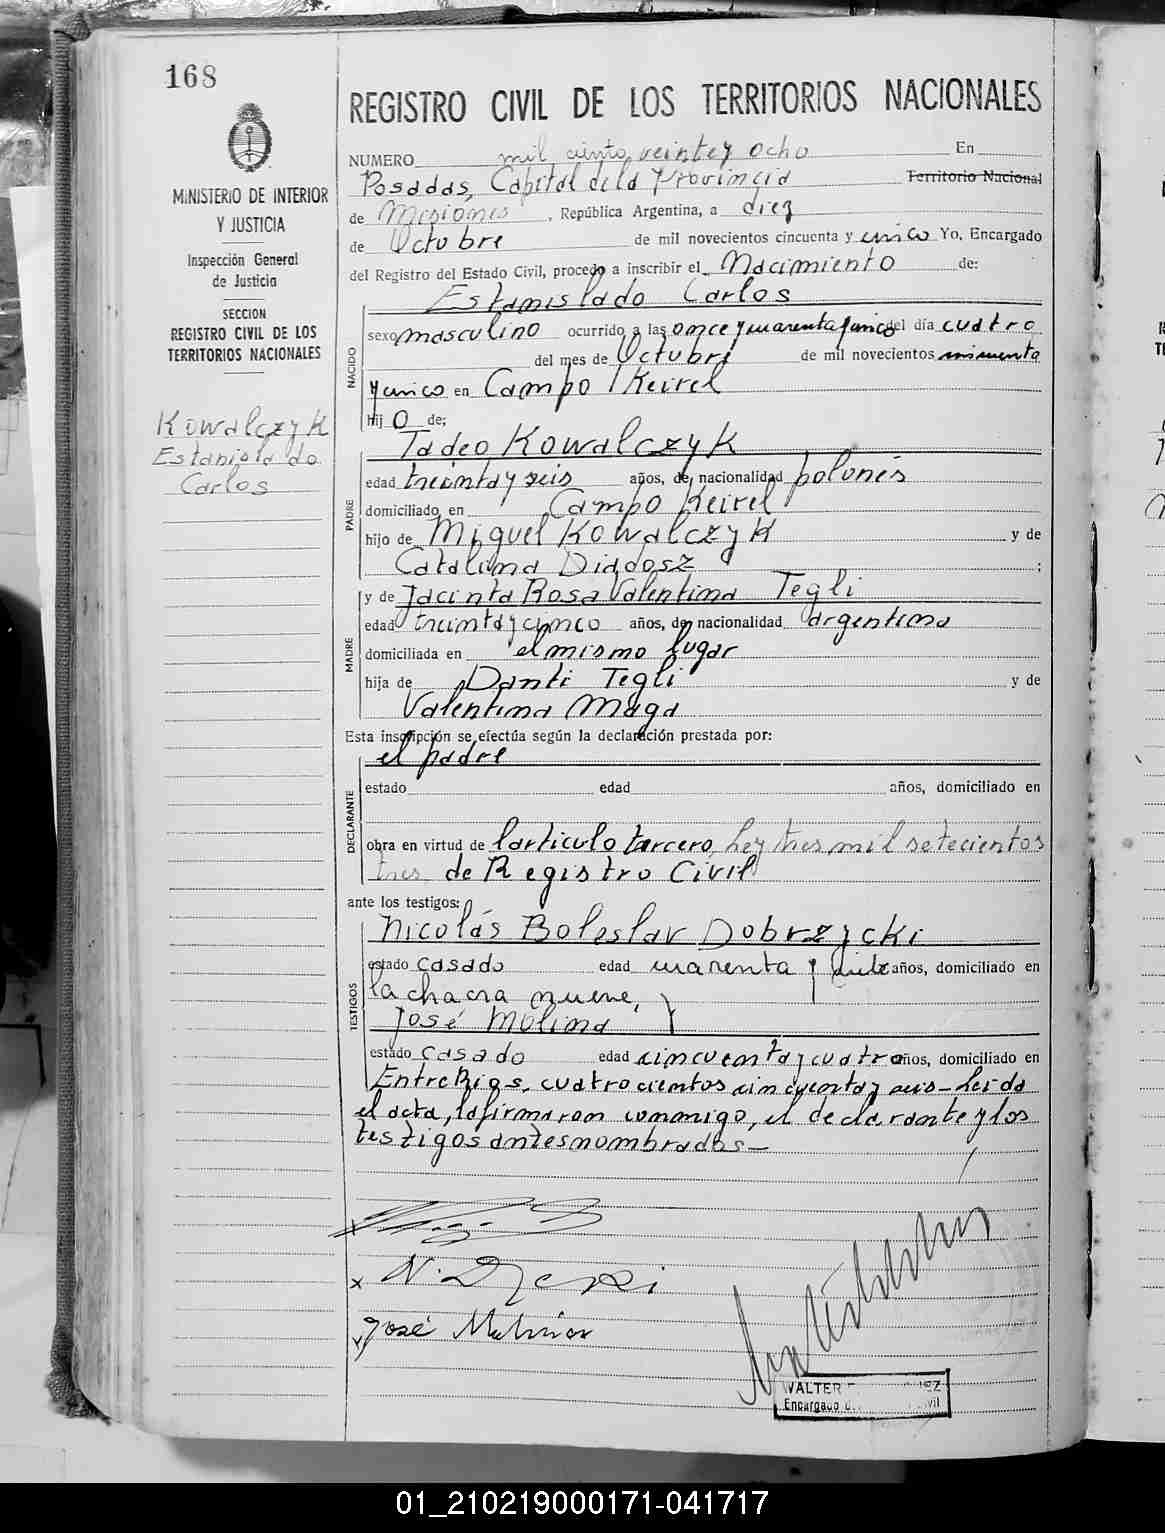 168
REGISTRO CIVIL DE LOS TERRITORIOS NACIONALES
MINISTERIO DE INTERIOR
Y JUSTICIA
Inspección General
de Justicia
SECCION
REGISTRO CIVIL DE LOS
TERRITORIOS NACIONALES
Kowalczyk
Estanislado
Carlos
NUMERO mil ciento veinte y ocho En
Posadas, Capital de la Provincia Territorio Nacional
de Misiones, República Argentina, a diez
de Octubre de mil novecientos cincuenta y cinco Yo, Encargado
del Registro del Estado Civil, procedo a inscribir el Nacimiento de:
NACIDO
Estanislado Carlos
sexo masculino ocurrido a las once y cuarenta y cinco del día cuatro
del mes de Octubre de mil novecientos cincuenta
y cinco en Campo Keirel
hijo de;
PADRE
Tadeo Kowalczyk
edad treinta y seis años, de nacionalidad polonés
domiciliado en Campo Keirel
hijo de Miguel Kowalczyk y de
Catalina Diadosz;
MADRE
y de Jacinta Rosa Valentina Tegli
edad treinta y cinco años, de nacionalidad argentina
domiciliada en el mismo lugar
hija de Danti Tegli y de
Valentina Maga
Esta inscripción se efectúa según la declaración prestada por:
DECLARANTE
el padre
estado edad años, domiciliado en
obra en virtud de l artículo tercero, Ley tres mil setecientos
tres de Registro Civil
ante los testigos:
TESTIGOS
Nicolás Boleslar Dobrzycki
estado casado edad cuarenta y años, domiciliado en
la chacra nueve,
José Molina
estado casado edad cincuenta y cuatro años, domiciliado en
Entre Rios, cuatrocientos cincuenta y seis - Leída
el acta, la firmaron conmigo, el declarante y los
testigos antes nombrados -
José Molina
WALTER EZ
Encargado d vil
01_210219000171-041717